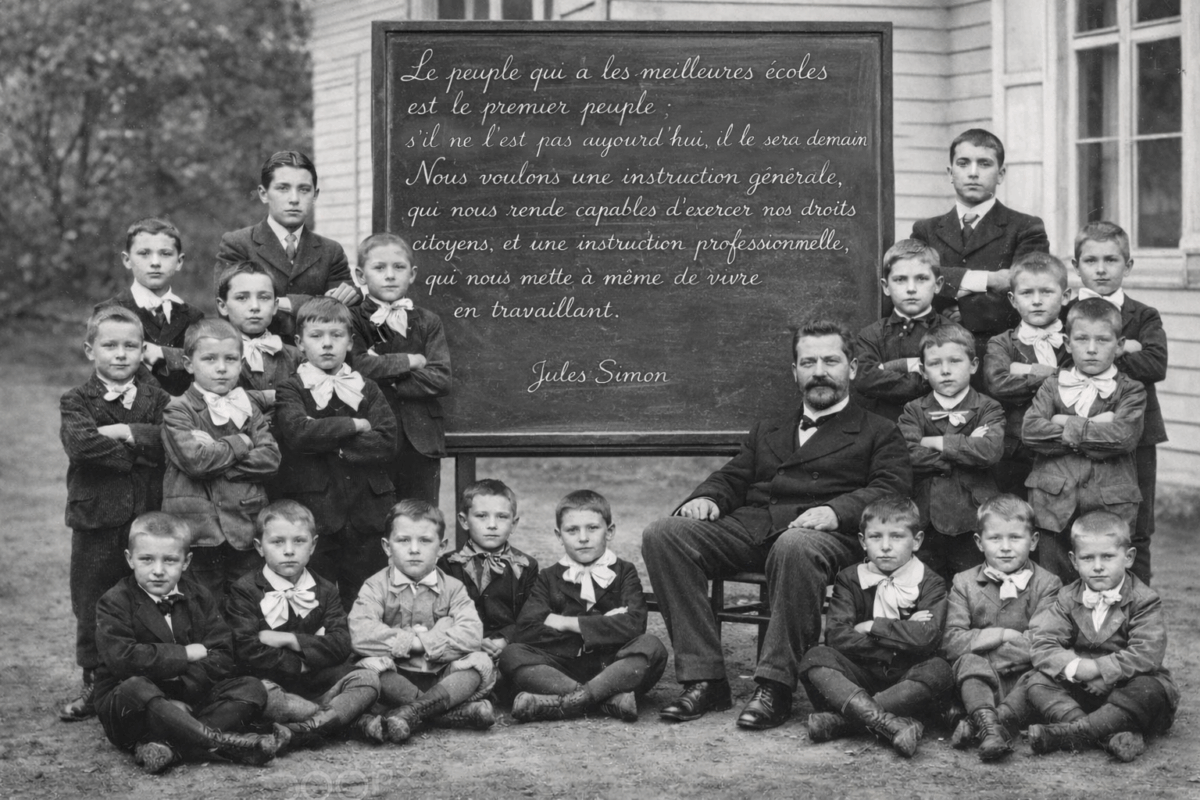 Le peuple qui a les meilleures écoles
est le premier peuple ;
s'il ne l'est pas aujourd'hui, il le sera demain
Nous voulons une instruction générale,
qui nous rende capables d'exercer nos droits
citoyens, et une instruction professionnelle,
qui nous mette à même de vivre
en travaillant.
Jules Simon